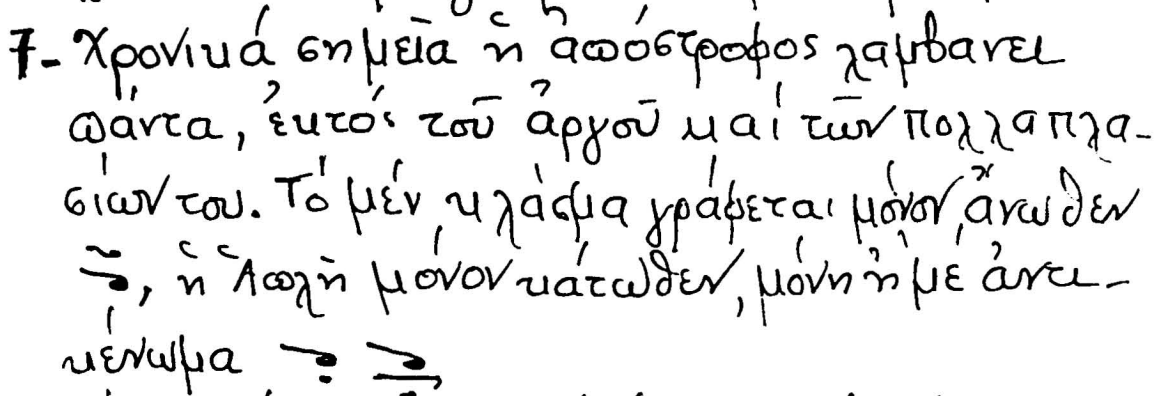 7- Χρονικά σημεῖα ἡ ἀπόστροφος λαμβάνει
πάντα, ἐκτός τοῦ ἀργοῦ καί τῶν πολλαπλα-
σίων του. Τό μέν κλάσμα γράφεται μόνον ἄνωθεν
, ἡ Ἁπλῆ μόνον κάτωθεν, μόνη ἤ μέ ἀντι-
κένωμα